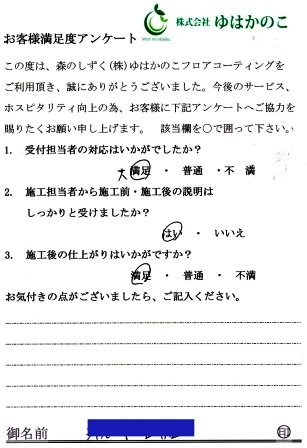 株式会社 ゆはかのこ
お客様満足度アンケート
この度は、森のしずく(株)ゆはかのこフロアコーティングを
ご利用頂き、誠にありがとうございました。今後のサービス、
ホスピタリティ向上の為、お客様に下記アンケートへご協力を
賜りたくお願い申し上げます。 該当欄を○で囲って下さい。
1. 受付担当者の対応はいかがでしたか?
大満足 ・ 普通 ・不 満
2. 施工担当者から施工前・施工後の説明は
しっかりと受けましたか?
はい ・ いいえ
3. 施工後の仕上がりはいかがですか?
満足 ・ 普通 ・ 不満
お気付きの点がございましたら、ご記入ください。
御名前 印